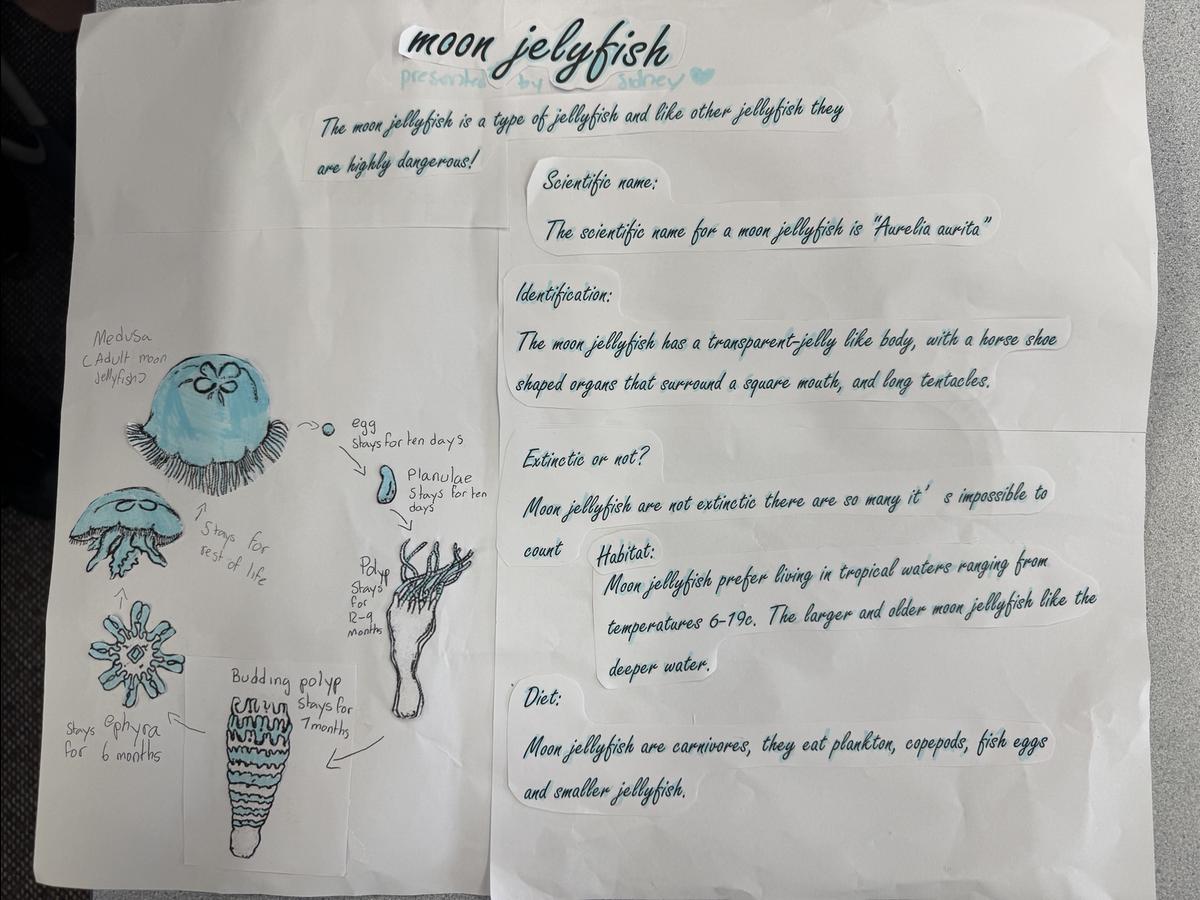 moon jelyfish
presented by Sidney
The moon jellyfish is a type of jellyfish and like other jellyfish they
are highly dangerous!
Scientific name:
The scientific name for a moon jellyfish is "Aurelia aurita"
Identification:
The moon jellyfish has a transparent-jelly like body, with a horse shoe
shaped organs that surround a square mouth, and long tentacles.
Extinctic or not?
Moon jellyfish are not extinctic there are so many it' s impossible to
count
Habitat:
Moon jellyfish prefer living in tropical waters ranging from
temperatures 6-19c. The larger and older moon jellyfish like the
deeper water.
Diet:
Moon jellyfish are carnivores, they eat plankton, copepods, fish eggs
and smaller jellyfish.
Medusa
(Adult moon
jellyfish)
egg
stays for ten days
Planulae
stays for ten
days
Polyp
stays
for
12-9
months
Budding polyp
stays for
7 months
ephyra
stays
for 6 months
stays for
rest of life